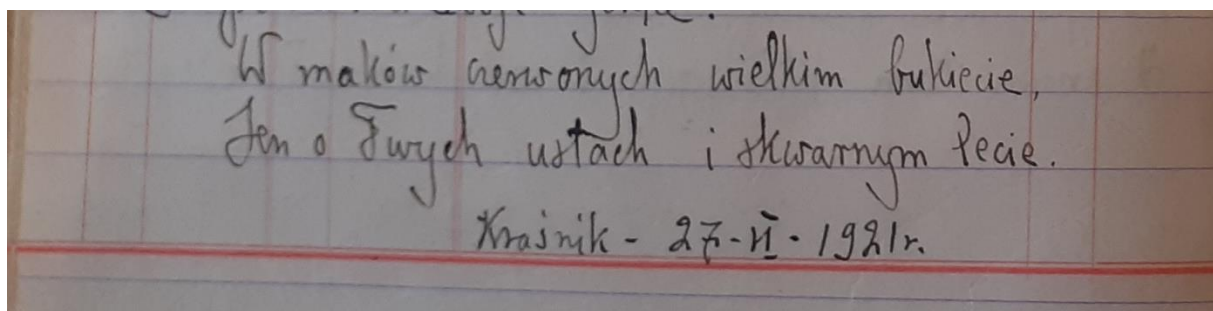 W maków czerwonych wielkim bukiecie,
Jen o Twych ustach i skwarnym lecie.
Kraśnik - 27 - VI - 1921 r.